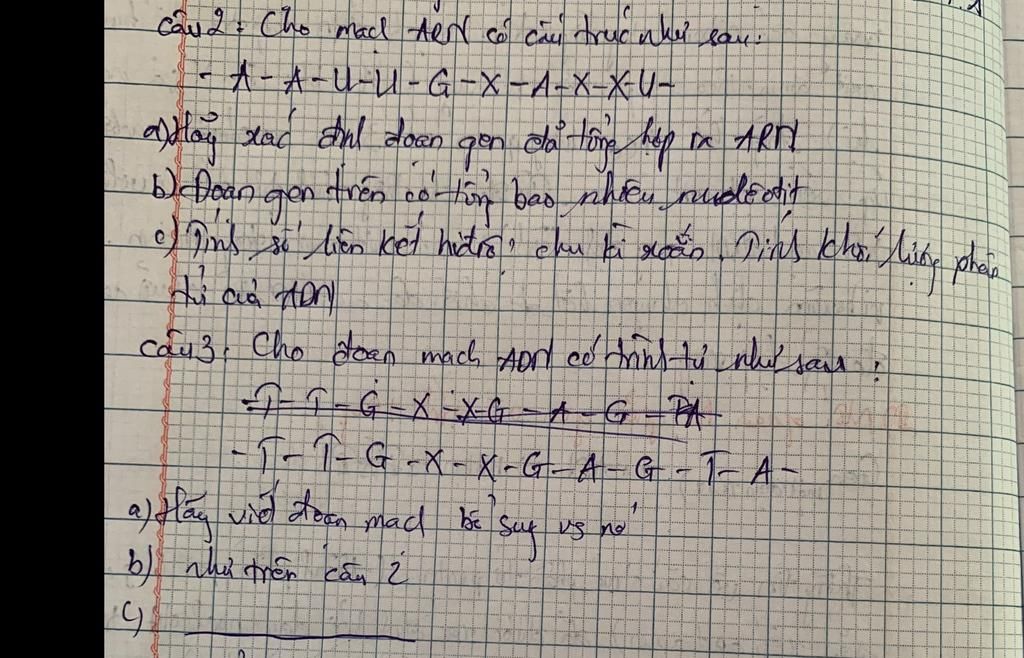 câu 2: Cho mạch ARN có cấu trúc như sau:
- A - A - U - U - G - X - A - X - X - U -
a) Hãy xác định đoạn gen đã tổng hợp ra ARN
b) Đoạn gen trên có tổng bao nhiêu nuclêôtit
c) Tính số liên kết hiđrô, chu kì xoắn. Tính khối lượng phân
tử của ADN
câu 3: Cho đoạn mạch ADN có trình tự như sau:
- T - T - G - X - X - G - A - G -
- T - T - G - X - X - G - A - G - T - A -
a) Hãy viết đoạn mạch bổ sung vs nó
b) như trên câu 2
c)